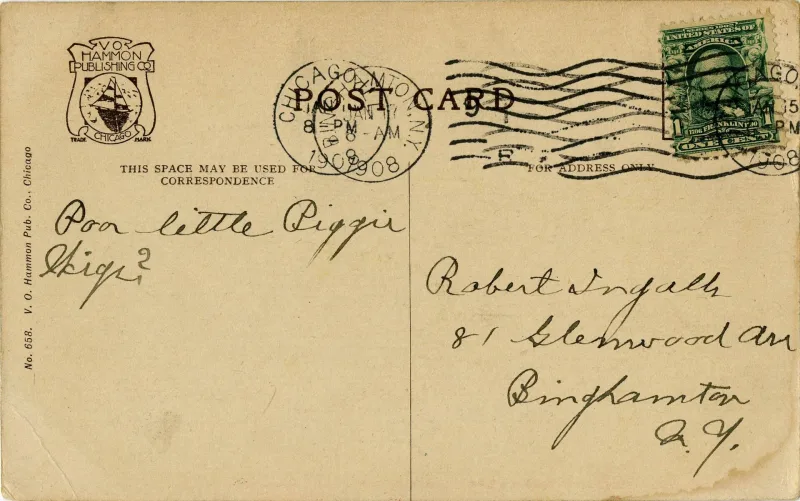 V.O.
HAMMON
PUBLISHING CO.
TRADE MARK
CHICAGO
POST CARD
CHICAGO
JAN
8 PM
1908
BINGHAMTON, N.Y.
JAN 17
AM
1908
SERIES 1902
UNITED STATES OF
AMERICA
1
FRANKLIN
ONE CENT
CHICAGO
JAN 15
PM
1908
THIS SPACE MAY BE USED FOR
CORRESPONDENCE
FOR ADDRESS ONLY
Poor little Piggie
Wigs?
Robert Ingalls
81 Glenwood Ave
Binghamton
N.Y.
No. 658. V. O. Hammon Pub. Co., Chicago